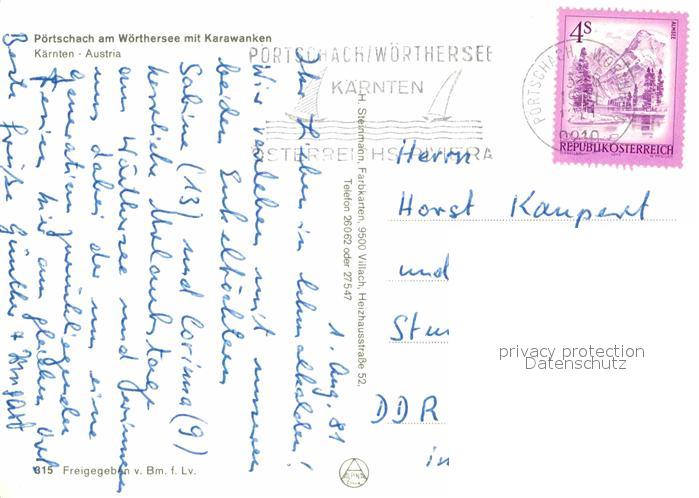 Pörtschach am Wörthersee mit Karawanken
Kärnten - Austria
PÖRTSCHACH/WÖRTHERSEE
KÄRNTEN
ÖSTERREICHS RIVIERA
PÖRTSCHACH
4S
ALMSEE
REPUBLIK ÖSTERREICH
1. Aug. 81
Ihr Lieben in
Wir verleben mit unseren
beiden Enkeltöchtern
Sabine (13) und Corinna (9)
herrliche Urlaubstage
am Wörthersee und erinnern
uns dabei der um eine
Generation zurückliegenden
Ferien hier am gleichen Ort
Beste Grüße Günther +
H. Steinmann, Farbkarten, 9500 Villach, Heizhausstraße 52,
Telefon 26062 oder 27547
Herrn
Horst Kaupert
und
DDR
in
privacy protection
Datenschutz
815 Freigegeben v. Bm. f. Lv.